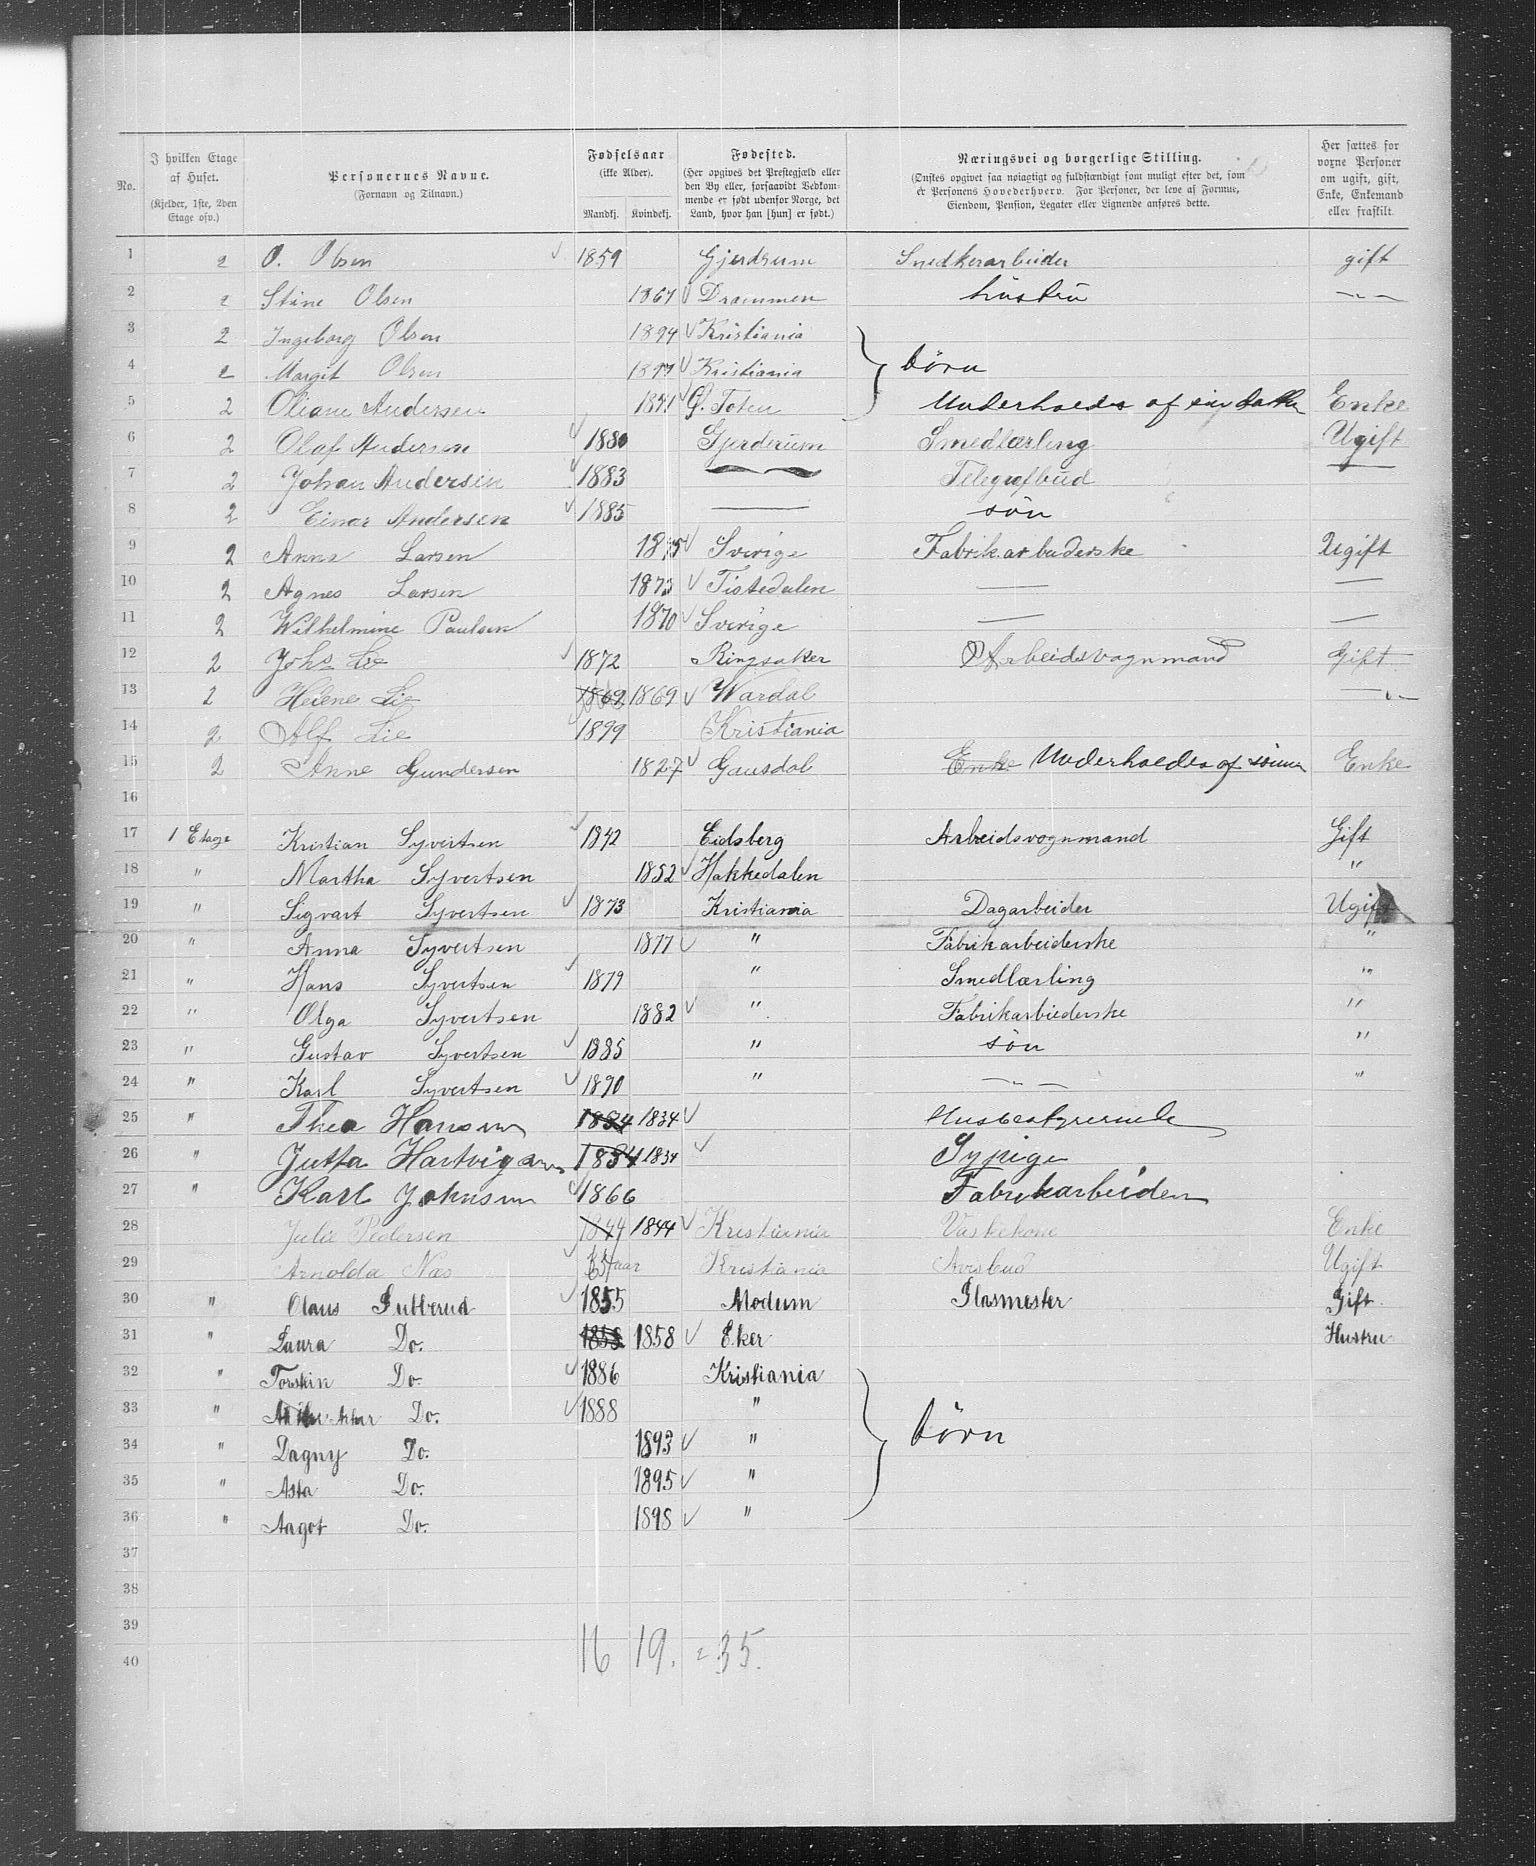 No. | I hvilken Etage af Huset. (Kjelder, 1ste, 2den Etage osv.) | Personernes Navne. (Fornavn og Tilnavn.) | Fødselsaar (ikke Alder). Mandkj. Kvindekj. | Fødested. (Her opgives det Præstegjæld eller den By eller, forsaavidt Vedkommende er født udenfor Norge, det Land, hvor han [hun] er født.) | Næringsvei og borgerlige Stilling. (Ønskes opgivet saa nøiagtigt og fuldstændigt som muligt efter det, som er Personens Hovederhverv. For Personer, der leve af Formue, Eiendom, Pension, Legater eller Lignende anføres dette. | Her sættes for voxne Personer om ugift, gift, Enke, Enkemand eller fraskilt.
1 2 O. Olsen 1859 Gjerdrum Snedkerarbeider gift
2 2 Stine Olsen 1867 Drammen hustru — „ —
3 2 Ingeborg Olsen 1894 Kristiania
4 2 Margit Olsen 1897 Kristiania børn
5 2 Oliane Andersen Ø. Toten Underholdes af sin Enke
6 2 Olaf Andersen 1880 Gjerderum Smedlærling Ugift
7 2 Johan Andersen 1883 — Telegrafbud —
8 2 Einar Andersen 1885 — søn
9 2 Anna Larsen 1875 Sverige Fabrikarbeiderske Ugift
10 2 Agnes Larsen 1873 Tistedalen — —
11 2 Wilhelmine Paulsen 1870 Sverige — —
12 2 Johs Lie 1872 Ringsaker Arbeidsvognmand Gift
13 2 Helene Lie 1869 1869 Wardal — „ —
14 2 Alf Lie 1899 Kristiania
15 2 Anne Gundersen 1827 Gausdal Enke Underholdes af sønnen Enke
16
17 1 Etage Kristian Syvertsen 1842 Eidsberg Arbeidsvognmand Gift
18 " Martha Syvertsen 1852 Hakkedalen "
19 " Sigvart Syvertsen 1873 Kristiania Dagarbeider Ugift
20 " Anna Syvertsen 1877 " Fabrikarbeiderske "
21 " Hans Syvertsen 1879 " Smedlærling "
22 " Olga Syvertsen 1882 " Fabrikarbiederske "
23 " Gustav Syvertsen 1885 " søn "
24 " Karl Syvertsen 1890 " — „ — "
25 " Thea Hansen 1834 1834 Husbestyrerinde
26 " Jutta Hartvigsen 1834 1834 Sypige
27 " Karl Johnsen 1866 Fabrikarbeider
28 Julie Pedersen 1844 1844 Kristiania Vaskekone Enke
29 Arnolda Næs aar Kristiania Avisbud Ugift
30 " Olaus Gulterud 1855 Modum Glasmester Gift.
31 " Laura Do. 1858 1858 Eker Hustru
32 " Torstein Do. 1886 Kristiania
33 " Do. 1888 "
34 " Dagny Do. 1893 " børn
35 " Asta Do. 1895 "
36 " Aagot Do. 1898 "
37
38
39
40 16 19. = 35.